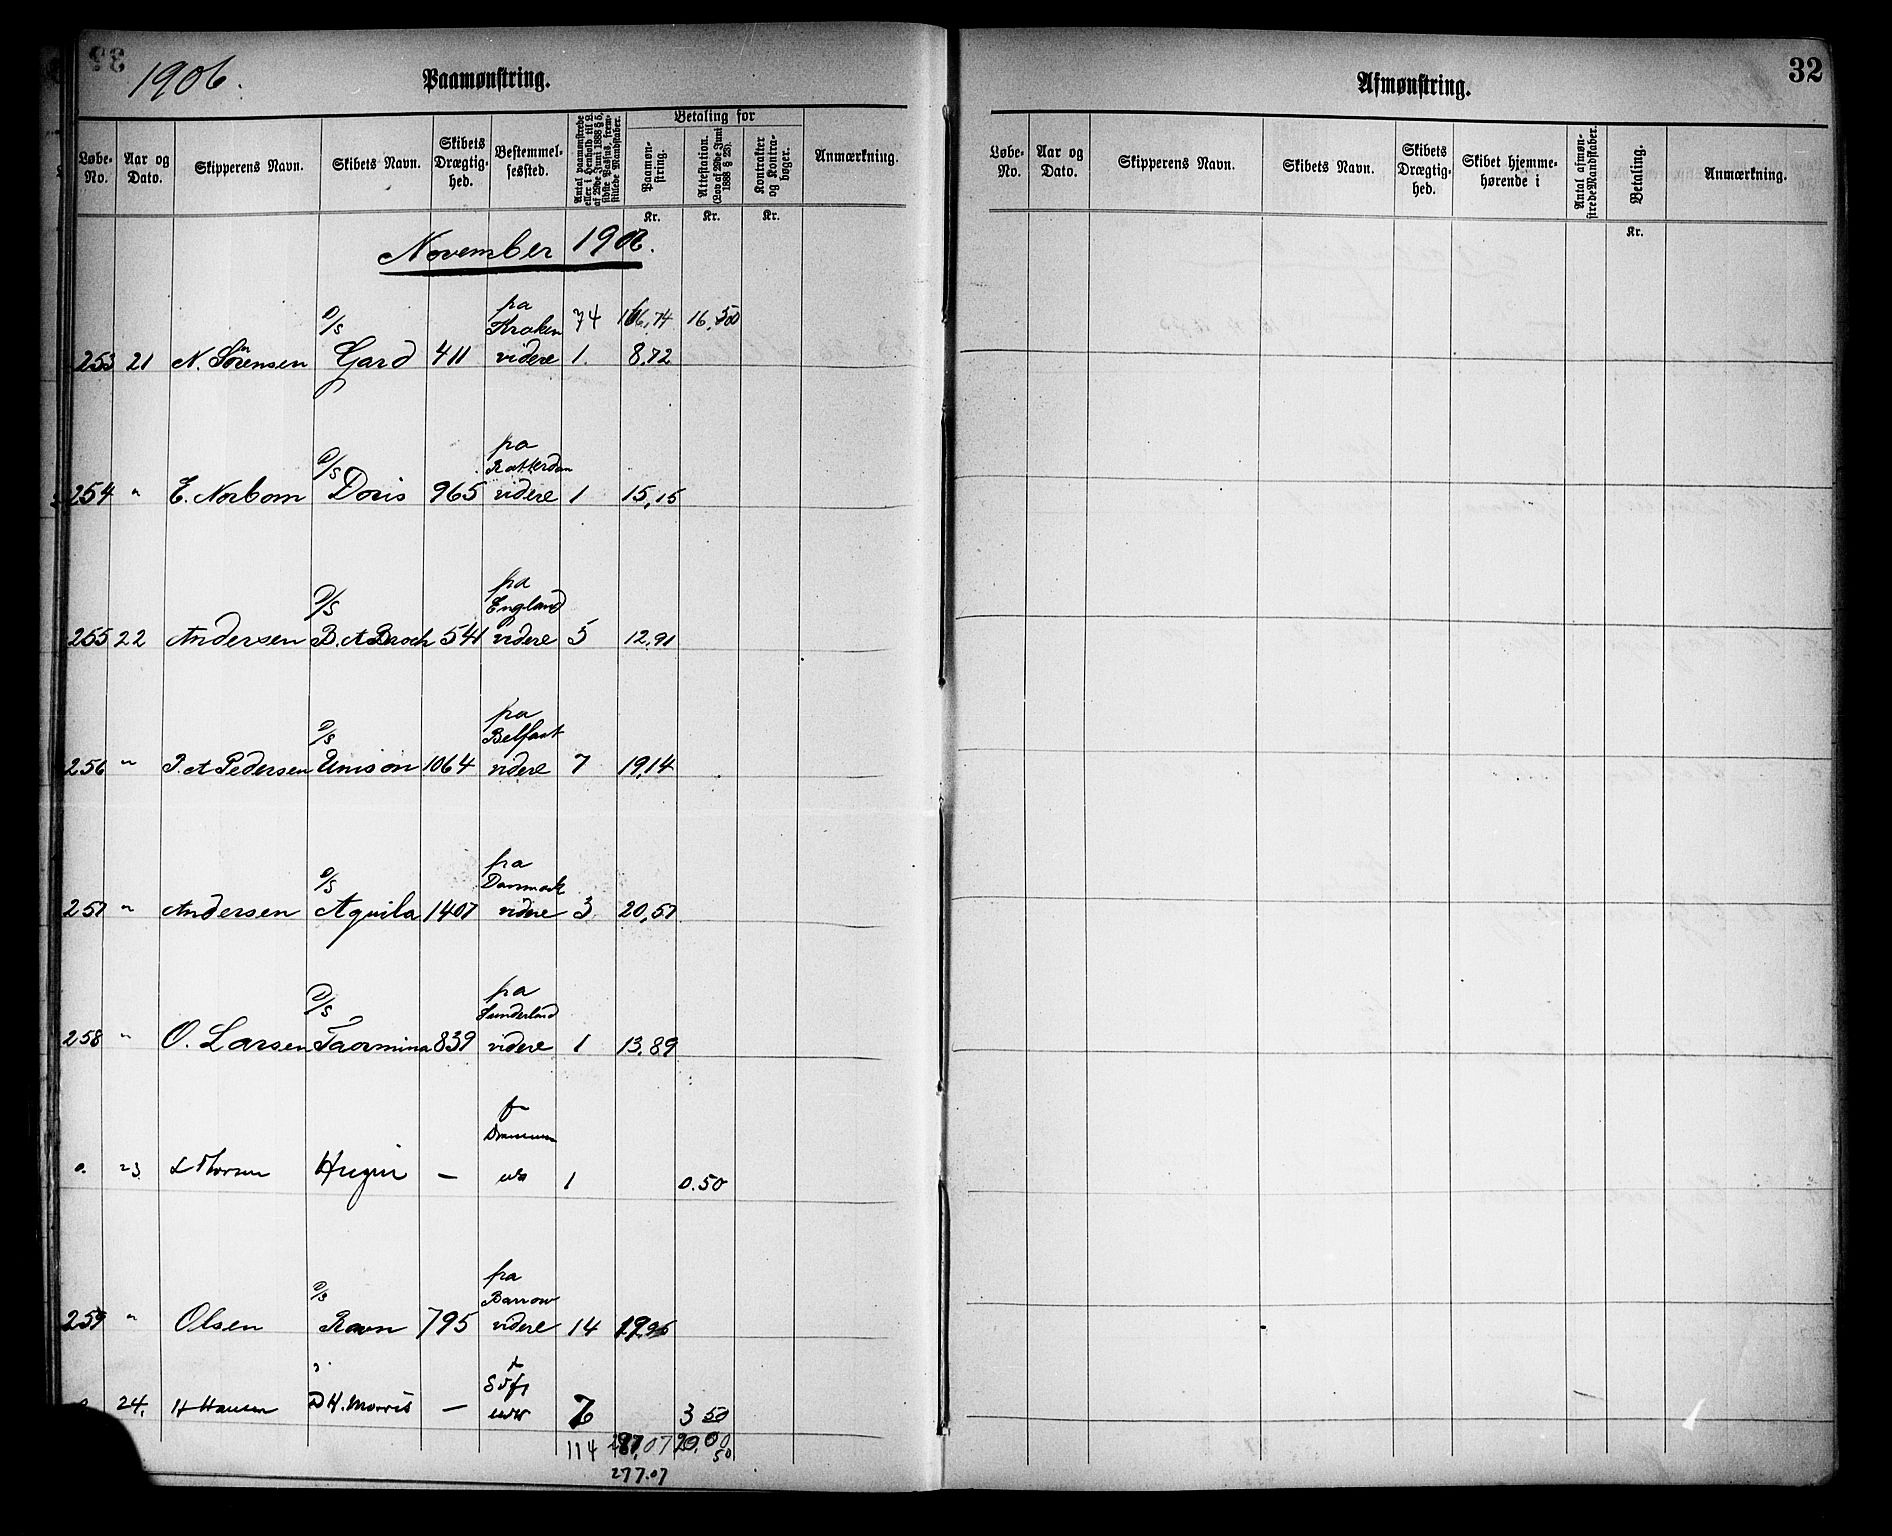 1906.
Paamønstring.
Løbe-No. Aar og Dato. Skipperens Navn. Skibets Navn. Skibets Drægtig-hed. Bestemmel-sessted. Antal paamønstrede eller i Henhold til L. af 29de Juni 1888 § 5, sidste Passus, frem-stillede Mandskaber. Betaling for Paamøn-string. Attestation. (Lov af 29de Juni 1888 § 23). Kontrakter og Kontra-bøger. Anmærkning.
Kr. Kr. Kr.
November 1906.
D/S fra Kraken 74 166,74 16,50
253 21 N. Sørensen Gard 411 videre 1. 8,72
D/S fra Rotterdam
254 " E. Norbom Doris 965 videre 1 15,15
D/S fra England
255 22 Andersen B. A Broch 544 videre 5 12,91
D/S fra Belfast
256 " P. A Pedersen Unison 1064 videre 7 19,14
D/S fra Danmark
257 " Andersen Aquila 1407 videre 3 20,57
D/S fra Sunderland
258 " O. Larsen Taormina 839 videre 1 13,89
0. 23 Hugin — 1 0.50
D/S fra Barrow
259 " Olsen Ravn 795 videre 14 19,95
24. H Hansen D H. Morris — 7 3 50
114
277.07
Afmønstring.
32
Løbe-No. Aar og Dato. Skipperens Navn. Skibets Navn. Skibets Drægtig-hed. Skibet hjemme-hørende i Antal afmøn-strede Mandskaber. Betaling. Anmærkning.
Kr.